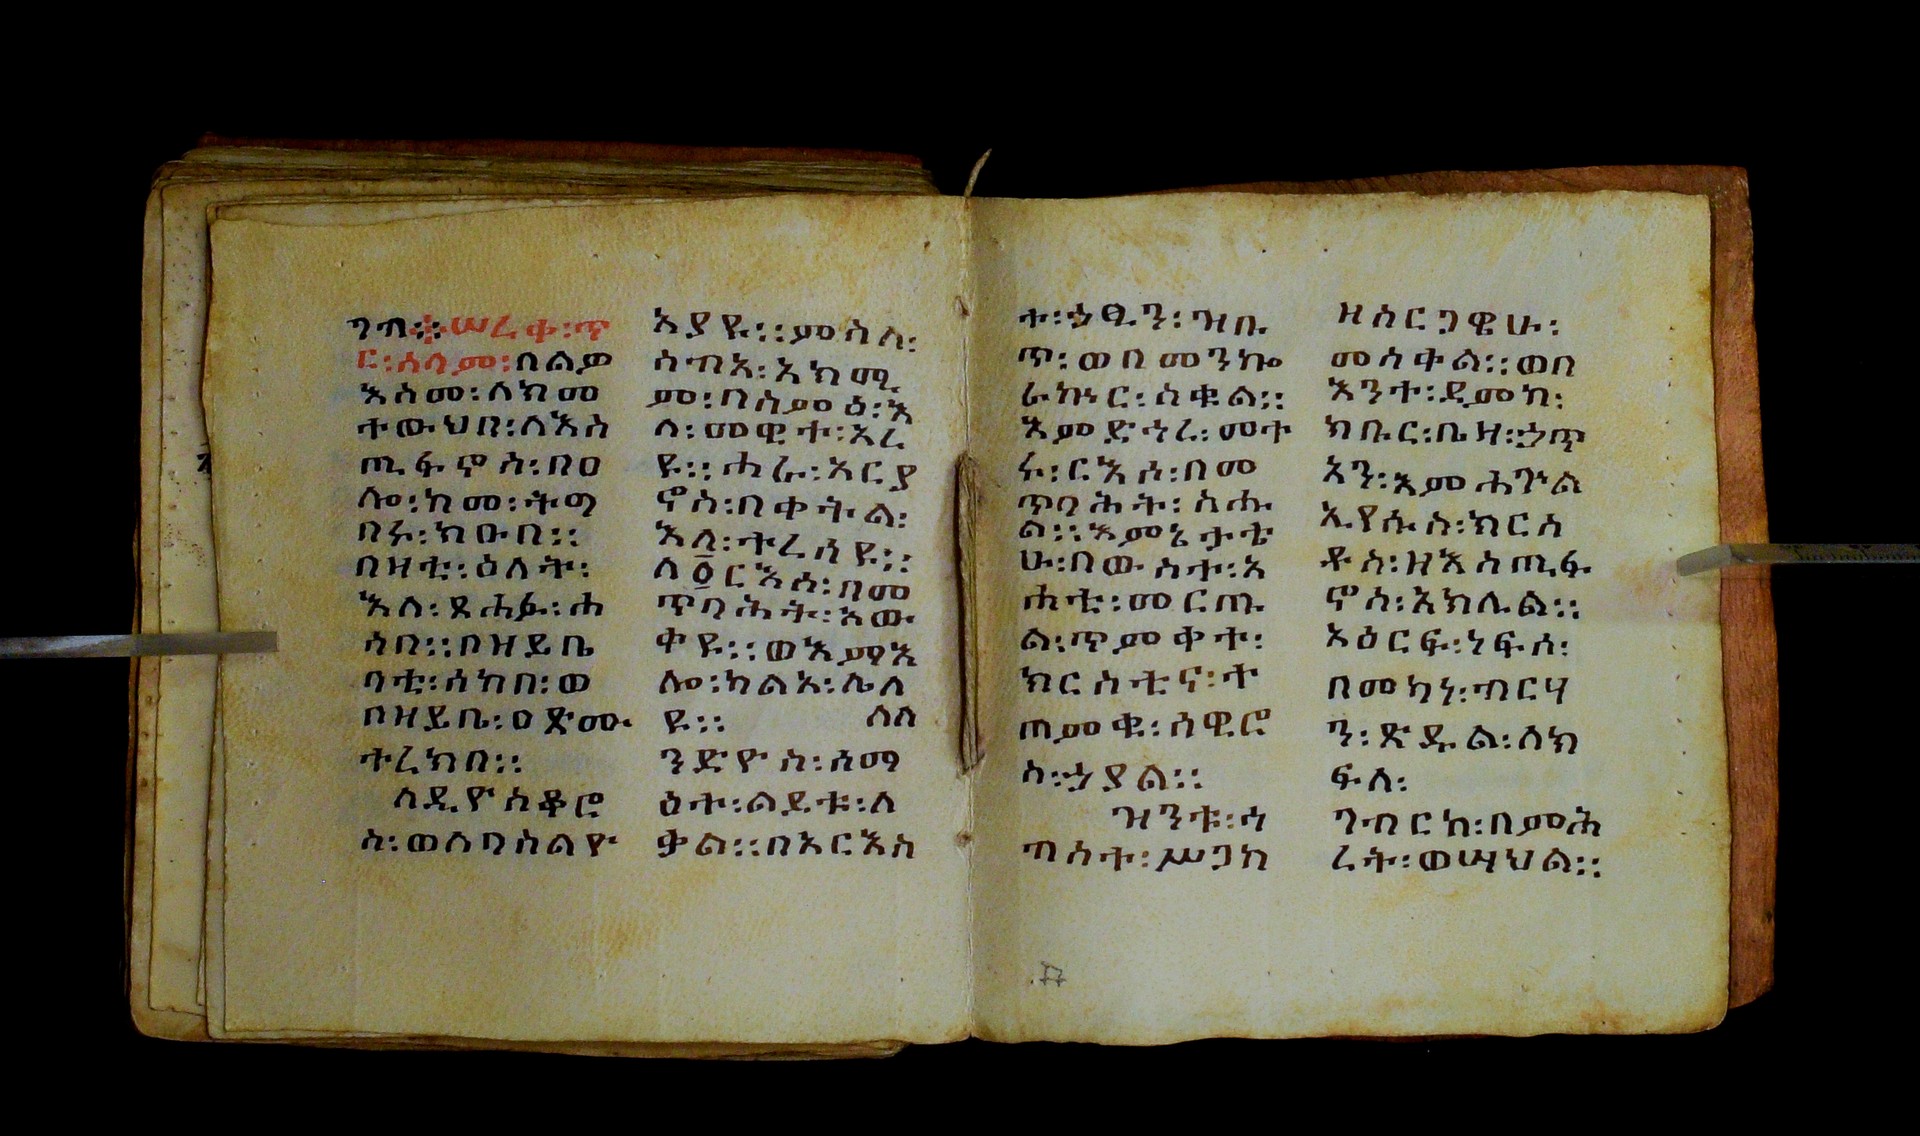 ገብ፨ሠረቀ፡ጥ
ር፡ሰላም፡በልዎ
እስመ፡ለክመ
ተውህበ፡ለእስ
ጢፋኖስ፡በዐ
ሎ፡ከመ፡ትግ
በሩ፡ክዑበ።
በዛቲ፡ዕለት፡
እለ፡ጸሐፉ፡ሐ
ሳበ።በዝይቤ
ባቲ፡ሰከበ፡ወ
በዝይቤ፡ዐጽሙ
ተረክበ።
ለዲዮስቆሮ
ስ፡ወለባስልዮ
እያዩ።ምስለ፡
ሰብአ፡አክሚ
ም፡በስምዕ፡እ
ለ፡መዊተ፡አረ
ዩ።ሐራ፡አርያ
ኖስ፡በቀትል፡
እለ፡ተረሰዩ።
ለ፬ርእሰ፡በመ
ጥባሕት፡አው
ቀዩ።ወእማእ
ሎ፡ካልአ፡ሌለ
ዩ። ለለ
ንድዮስ፡ሰማ
ዕተ፡ልደቱ፡ለ
ቃል።በአርእስ
ተ፡ኃፂን፡ዝቡ
ጥ፡ወበመንኰ
ራኵር፡ስቁል።
እምድኅረ፡መተ
ሩ፡ርእሰ፡በመ
ጥባሕት፡ስሑ
ል።እምኔታቴ
ሁ፡በውስተ፡አ
ሐቲ፡መርጡ
ል፡ጥምቀተ፡
ክርስቲና፡ተ
ጠምቁ፡ሰዊሮ
ስ፡ኃያል።
ዝንቱ፡ሰ
ጣሰት፡ሥጋከ
ዘስርጋዊሁ፡
መስቀል።ወበ
እንተ፡ደምከ፡
ክቡር፡ቤዛ፡ኃጥ
አን፡እምሕጕል
ኢየሱስ፡ክርስ
ቶስ፡ዘእስጢፋ
ኖስ፡አክሊል።
አዕርፍ፡ነፍሰ፡
በመካነ፡ብርሃ
ን፡ጽዱል፡ሰክ
ፍለ፡
ገብርከ፡በምሕ
ረት፡ወሣህል።